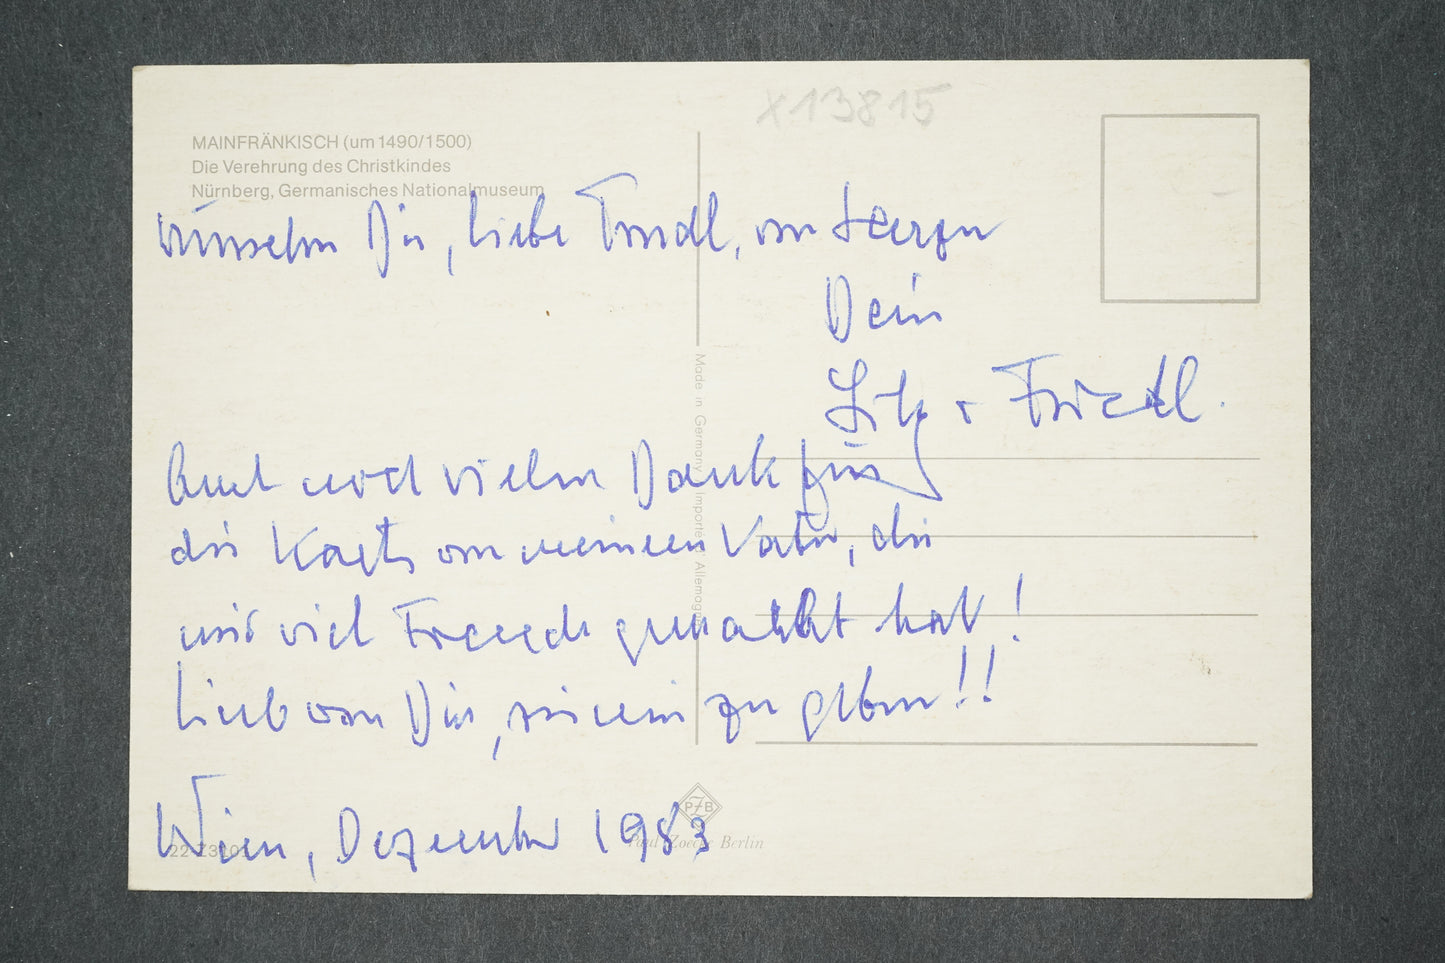 X13815
MAINFRÄNKISCH (um 1490/1500)
Die Verehrung des Christkindes
Nürnberg, Germanisches Nationalmuseum
wünschen Dir, liebe Trudl, von Herzen
Dein
Friedl.
Auch noch vielen Dank für
die Karte von meinem Vater, die
mir viel Freude gemacht hat!
Lieb von Dir, sie mir zu geben!!
Wien, Dezember 1983
Made in Germany Importé d'Allemagne
PZB
Paul Zoecke Berlin